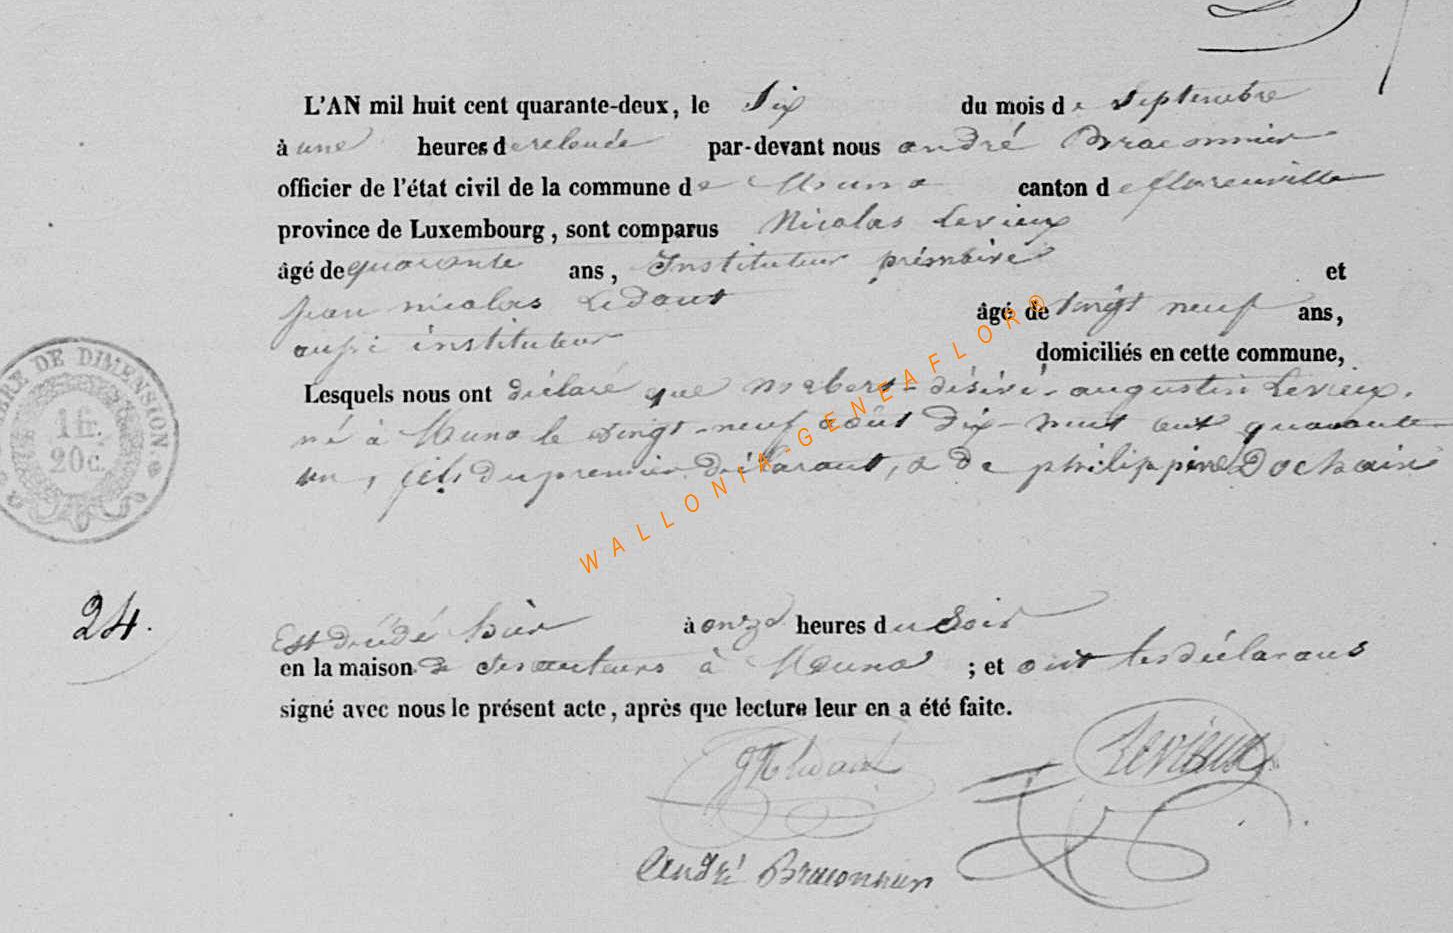 L'AN mil huit cent quarante-deux, le Six du mois de Septembre
à une heures de relevée par-devant nous andré Braconnier
officier de l'état civil de la commune de Muno canton de florenville
province de Luxembourg, sont comparus Nicolas Levieux
âgé de quarante ans, Instituteur primaire et
jean nicolas Ledant âgé de vingt neuf ans,
aussi instituteur
domiciliés en cette commune,
Lesquels nous ont déclaré que désiré augustin Levieux,
né à Muno le vingt-neuf août dix-huit cent quarante
un, fils du premier déclarant, & de philippine Dochain
24.
Est décédé hier à onze heures du Soir
en la maison de à Muno ; et ont les déclarans
signé avec nous le présent acte, après que lecture leur en a été faite.
Ledant Levieux
André Braconnier
TIMBRE DE DIMENSION.
1 fr.
20c.
WALLONIA-GENEAFLOR®